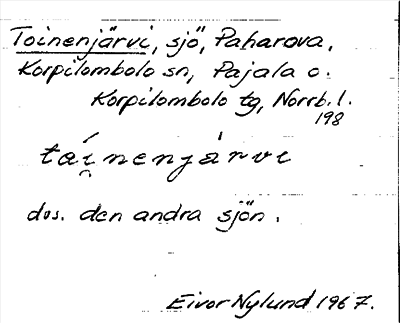 Toinenjärvi, sjö, Paharova,
Korpilombolo sn, Pajala o.
Korpilombolo tg, Norrb. l.
198
tái̯nenjárvi
dvs. den andra sjön.
Eivor Nylund 1967.